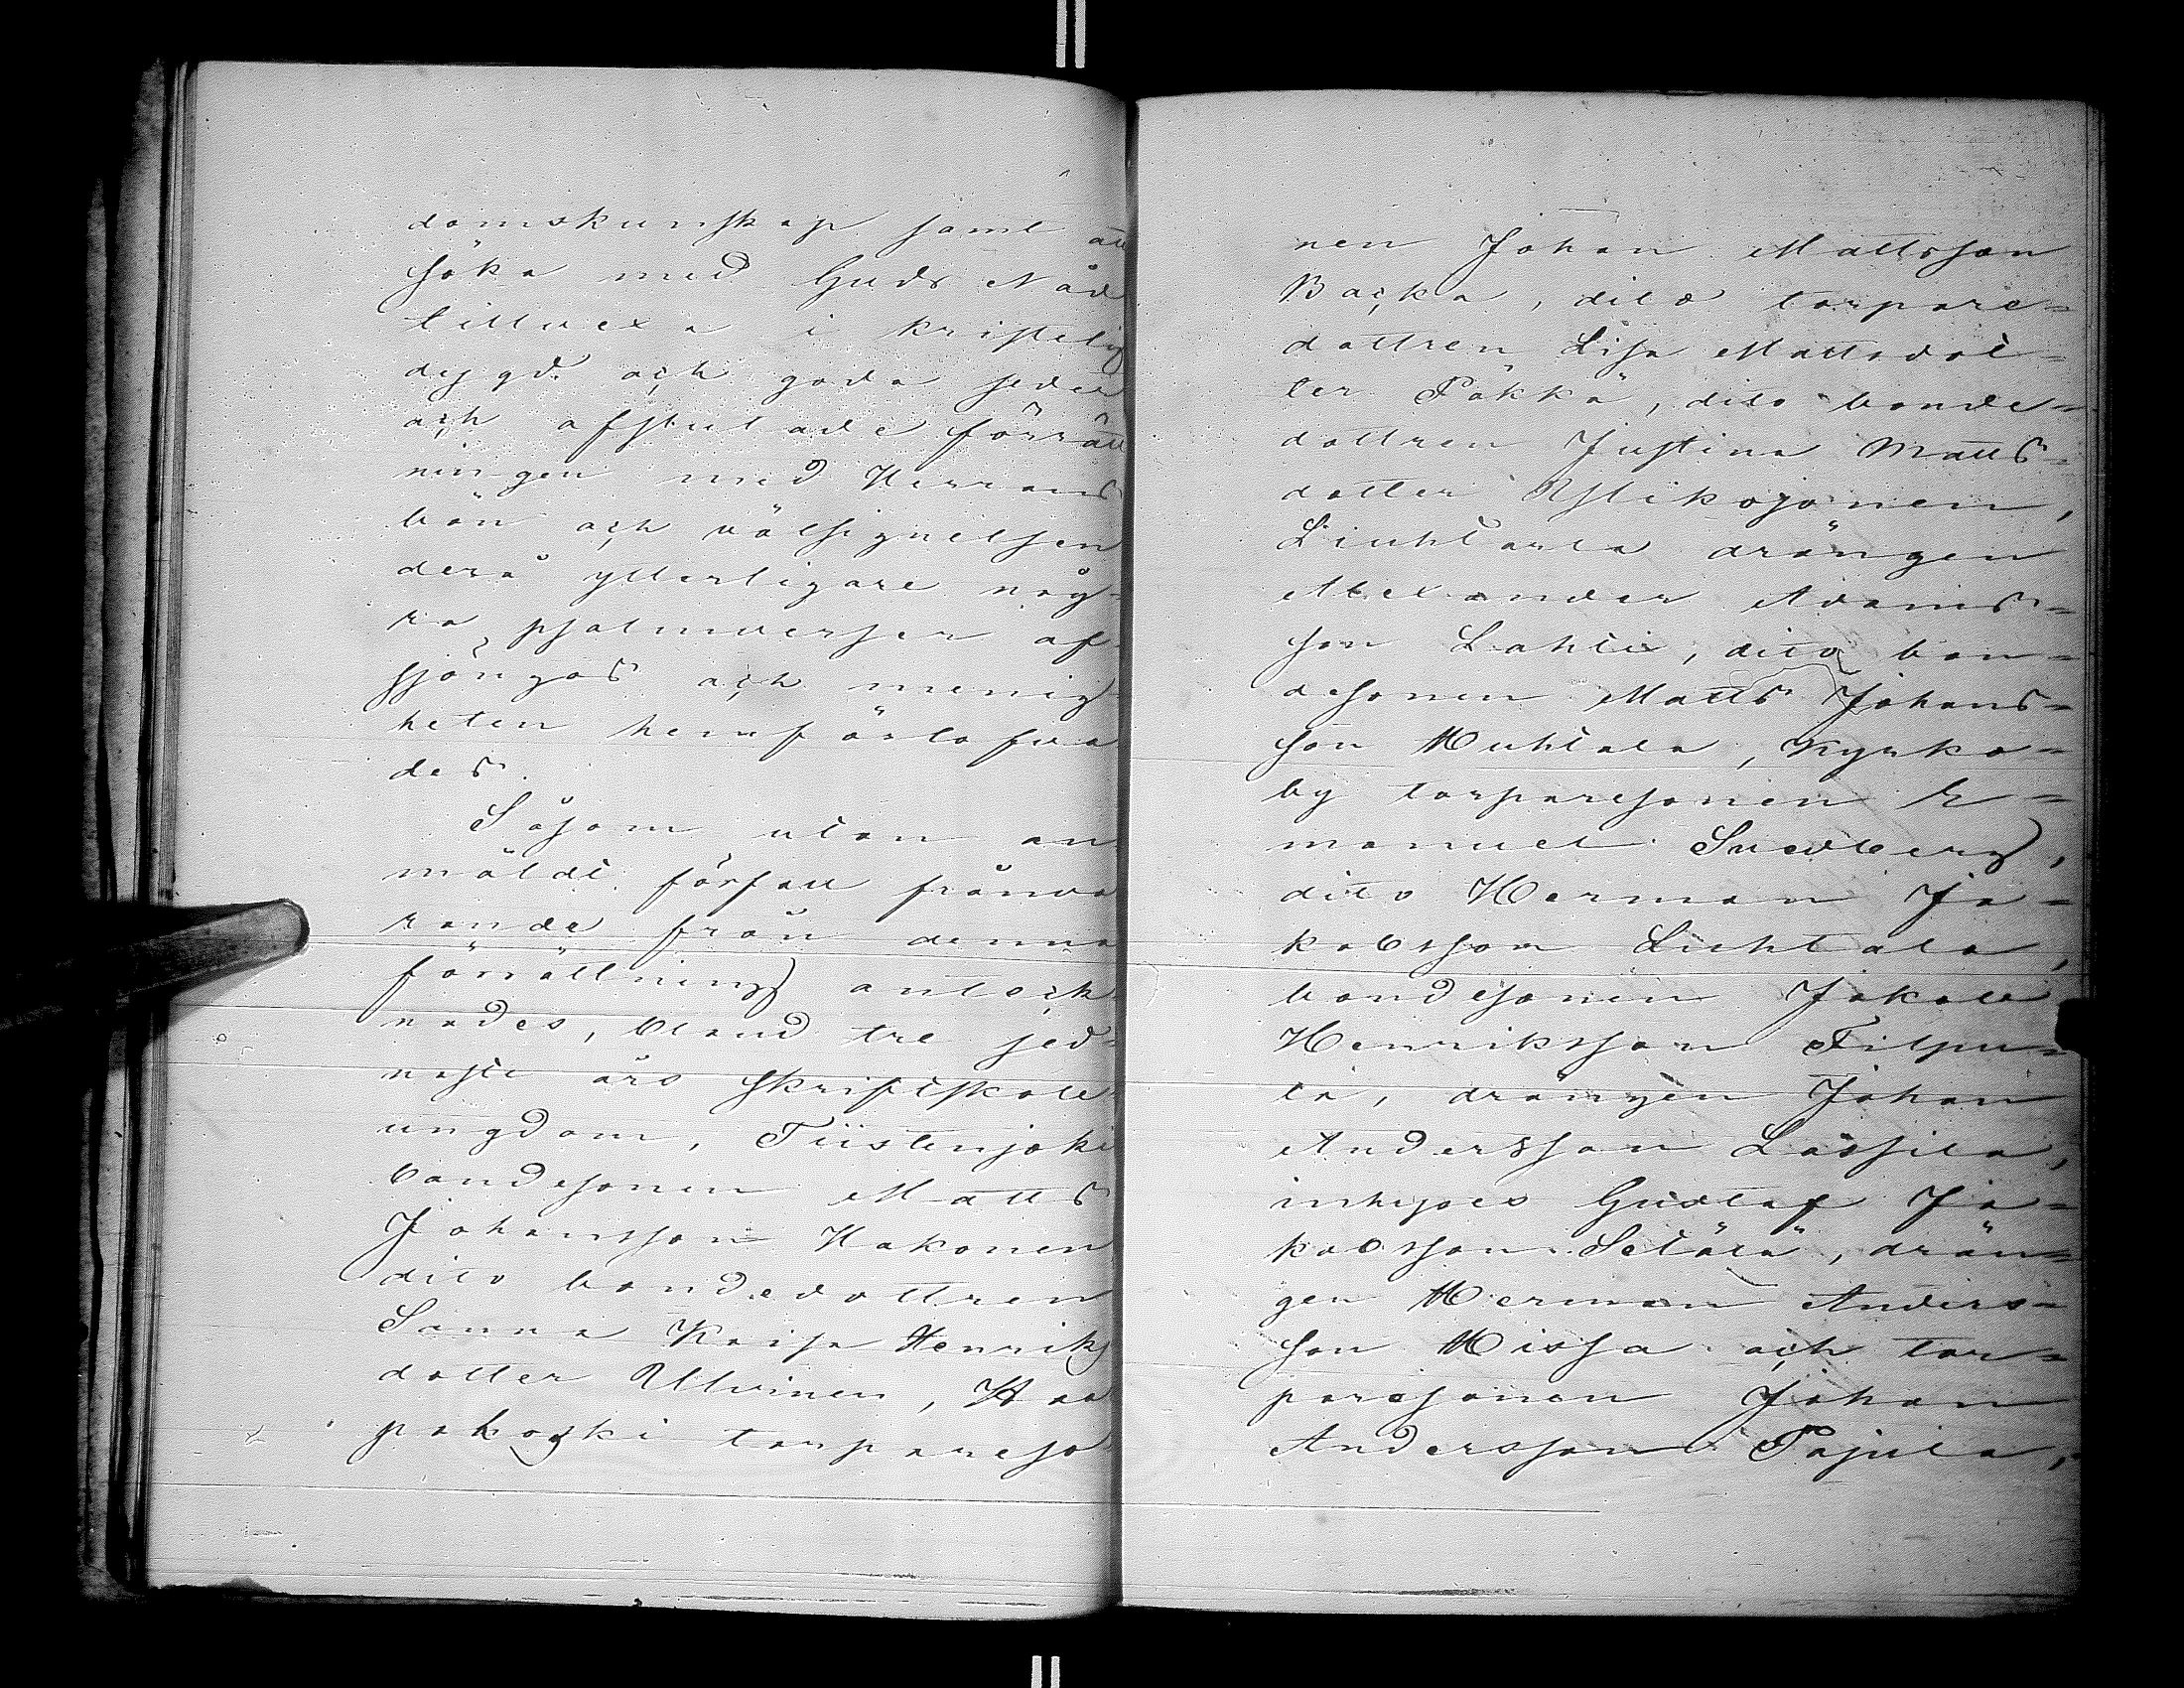 domskunskap samt att
söka med Guds Nåd
tillvexa i kristelig
dygd och goda seder
och afslutade förrätt
ningen med Herrans
bön och välsignelsen
derå ytterligare någ-
ra psalmverser af-
sjöngos och menig
heten hemförlofva
des.
Såsom utan an
mäldt förfall frånva
rande från denna
förrättning anteck
nades, bland tre sed-
naste års skriftskole
ungdom, Tiistenjoki
bondesonen Matts
Johansson Hakonen
dito bondedottren
Sanna Kaisa Henriks
dotter Ulvinen, Haa
pakoski torpareso
nen Johan Mattsson
Backa, dito torpare-
dottren Lisa Mattsdot-
ter Pökkä, dito bonde-
dottren Justina Matts-
dotter Ylikojonen,
Liuhtarla drängen
Alexander Adams-
son Lahti, dito bon-
desonen Matts Johans-
son Huhtala, Kyrko-
by torparesonen E-
manuel Svedberg,
dito Herman Ja-
kobsson Liuhtala,
bondesonen Jakob
Henriksson Filpu-
la, drängen Johan
Andersson Lassila,
inhyses Gustaf Ja-
kobsson Setälä, drän-
gen Herman Anders-
son Hissa och tor-
paresonen Johan
Andersson Pajula,